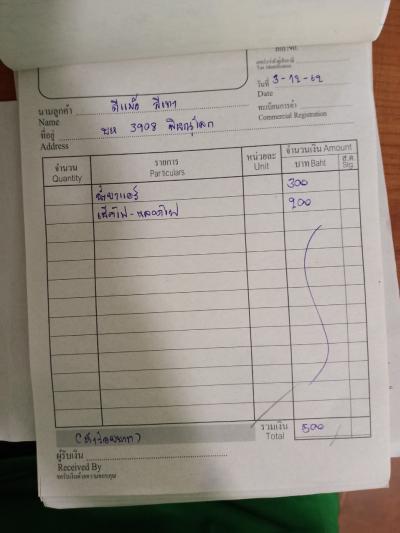 เลขประจำตัวผู้เสียภาษี
Tax Identification
วันที่ 3-12-62
Date
นามลูกค้า ดีแม็ก สีเทา
Name
ทะเบียนการค้า
Commercial Registration
ที่อยู่ บห 3908 พิษณุโลก
Address
จำนวน
Quantity
รายการ
Particulars
หน่วยละ
Unit
จำนวนเงิน Amount
บาท Baht
ส.ต.
Stg.
300
เช็คไฟ-หลอดไฟ 200
(ห้าร้อยบาท)
รวมเงิน
Total
500
ผู้รับเงิน
Received By